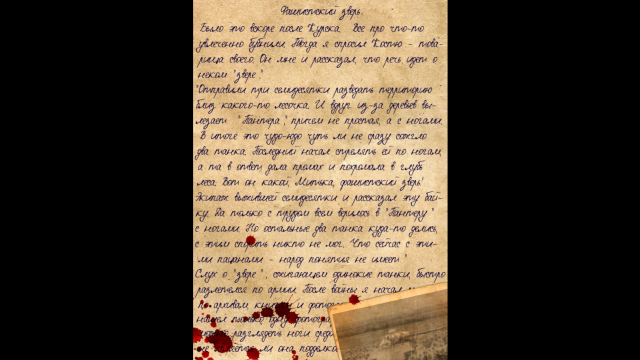 Фашистский зверь.
Было это вскоре после Курска. Все про что-то
увлеченно бубнили. Тогда я спросил Костю - това-
рища своего. Он мне и рассказал, что речь идет о
неком "звере".
"Отправили три семидесятки разведать территорию
близ какого-то лесочка. И вдруг из-за деревьев вы-
лезает "Пантера", причем не простая, а с ногами.
В итоге это чудо-юдо чуть ли не сразу сожгло
два танка. Последний начал стрелять ей по ногам,
а та в ответ дала промах и похромала в глубь
леса. Вот он какой, Митька, фашистский зверь!
Экипаж выжившей семидесятки и рассказал эту бай-
ку. Да только с трудом всем верилось в "Пантеру"
с ногами. Но остальные два танка куда-то делись,
с этим спорить никто не мог. Что сейчас с эти-
ми пацанами - народ понятия не имеет."
Слух о "звере", сжигающем одинокие танки, быстро
разлетелся по армии. После войны я начал
по архивам, книгам и
нашел только одну
разглядеть ноги
не ли она подделка